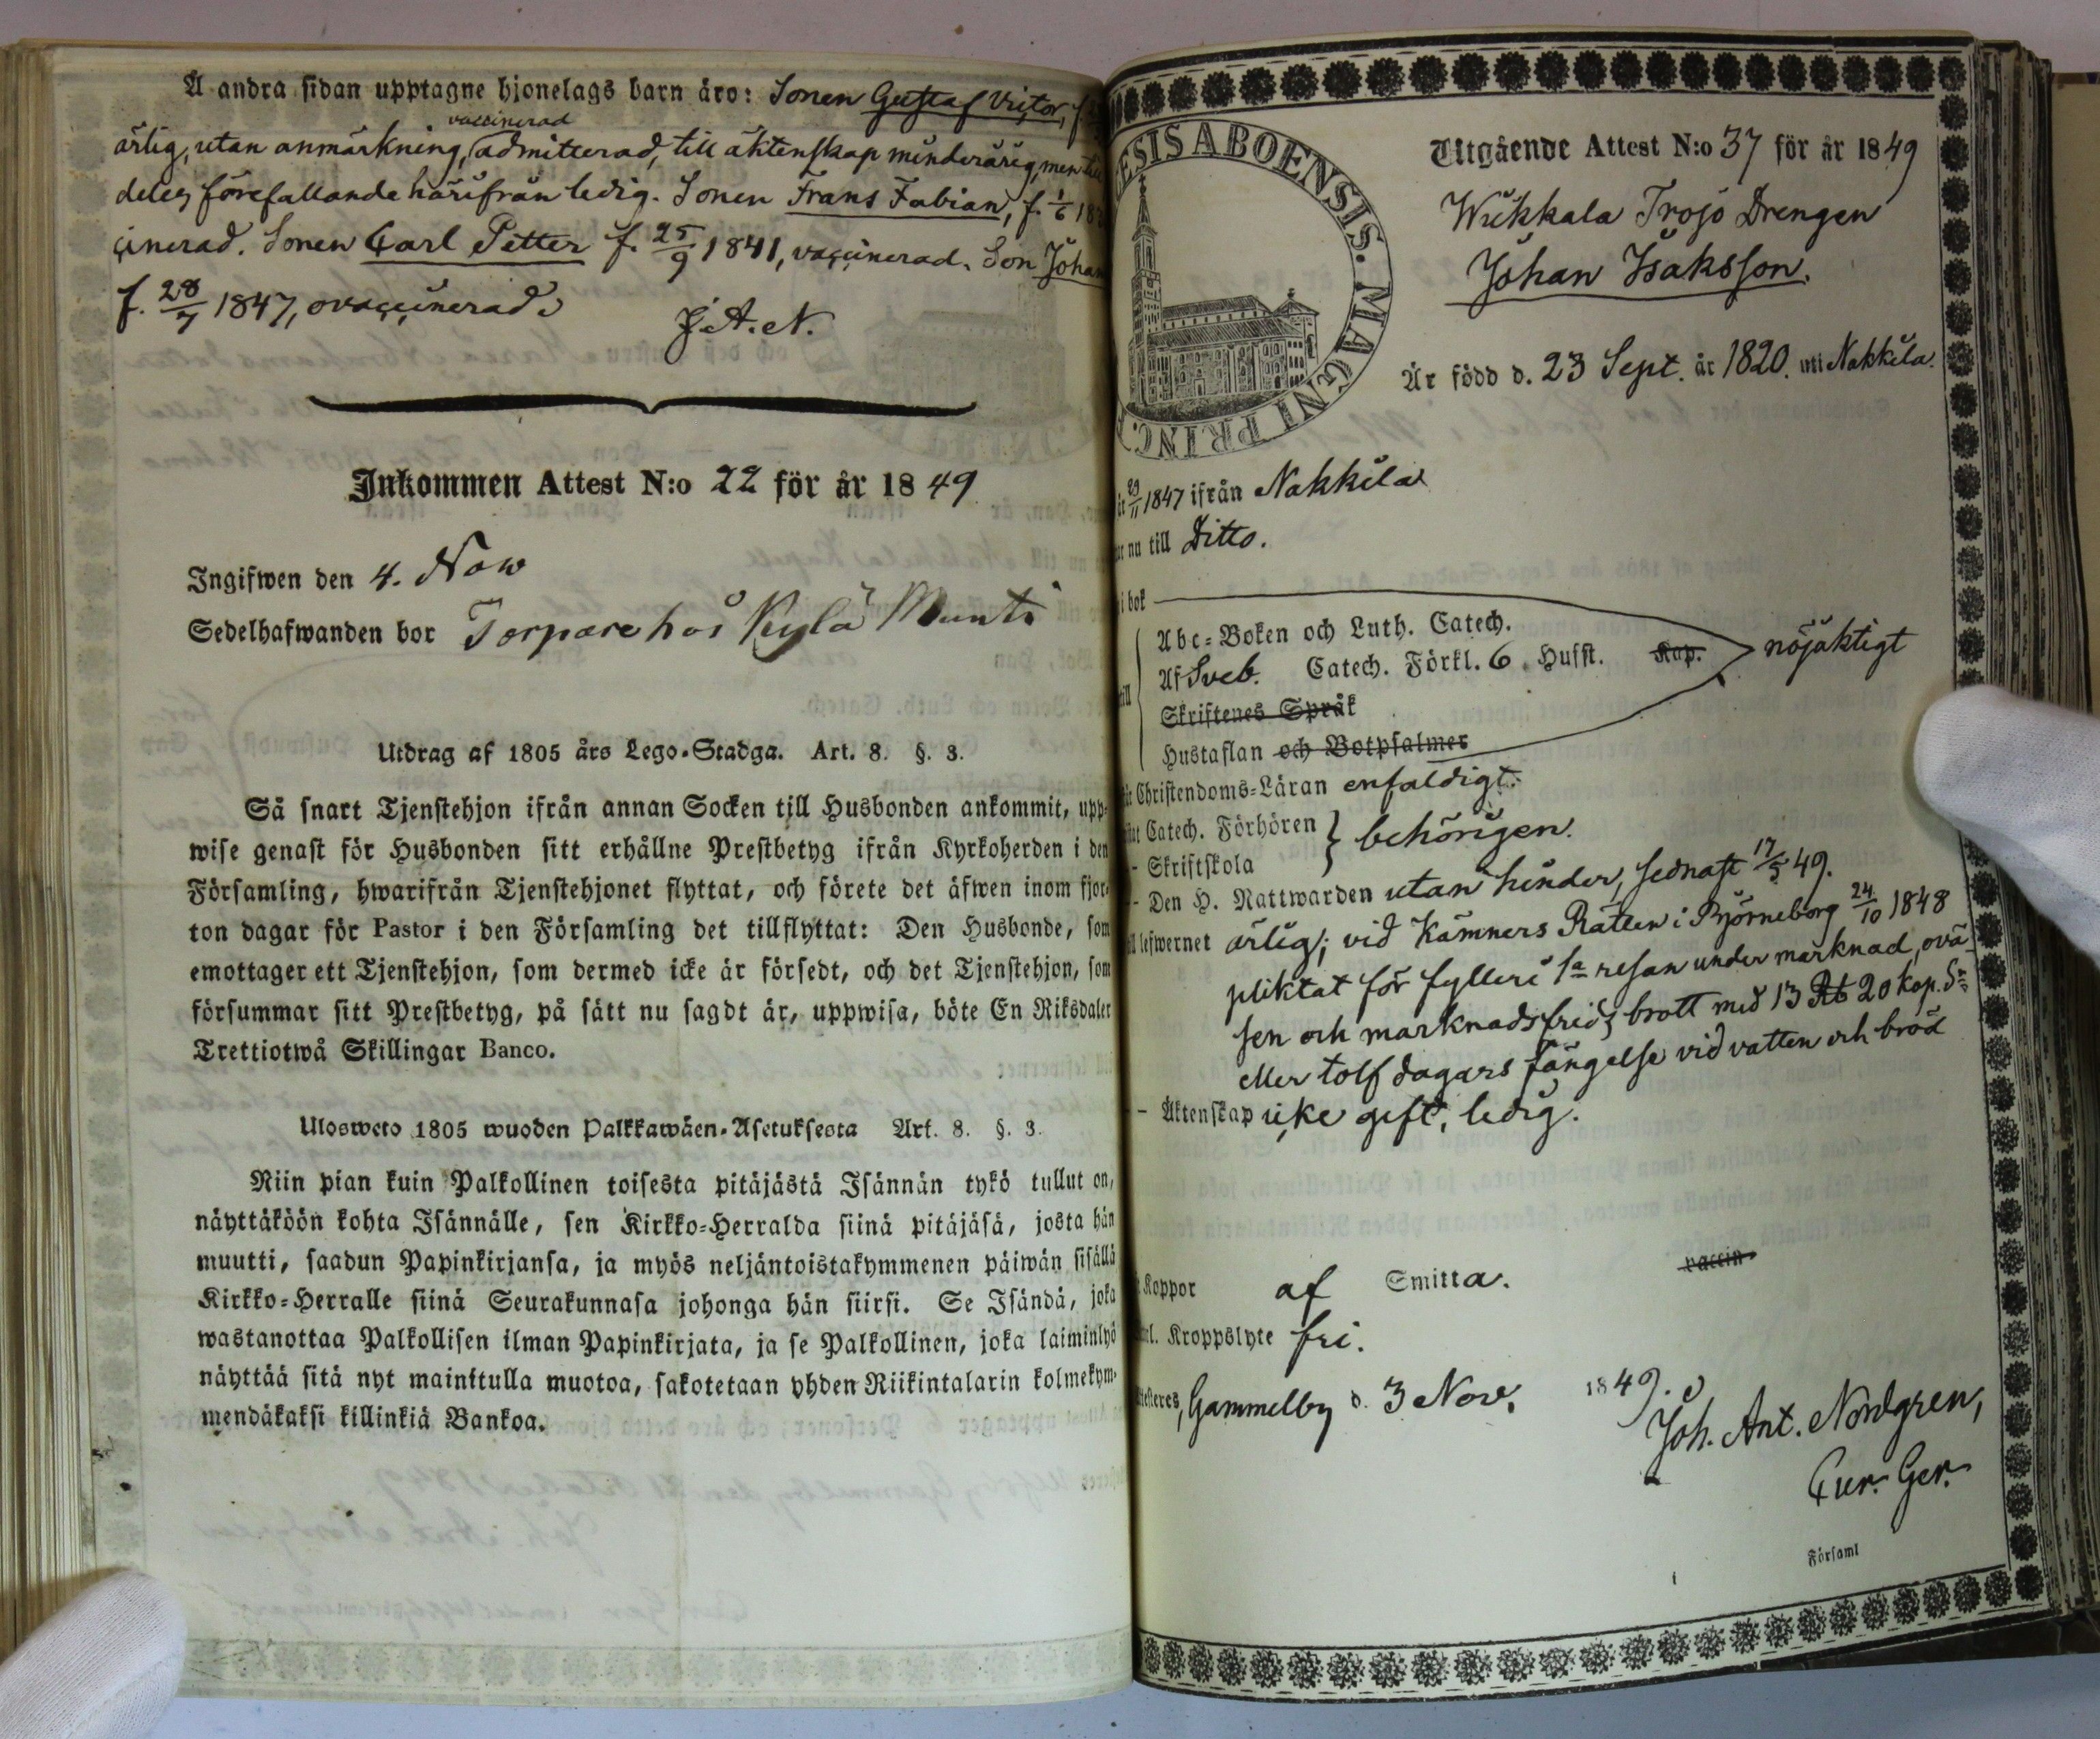 Å andra sidan upptagne hjonelags barn äro: Sonen Gustaf Victor, f.
vaccinerad
ärlig, utan anmärkning, admitterad, till äktenskap minderårig, men
deles förefallande härifrån ledig. Sonen Frans Fabian, f. 1/6 18
cinerad. Sonen Carl Petter f. 25/9 1841, vaccinerad. Son Johan
f. 28/7 1847, ovaccinerad.
J. A. N.
Inkommen Attest N:o 22 för år 1849
Ingifwen den 4. Nov
Sedelhafwanden bor Torpare hos Kylä Munti
Utdrag af 1805 års Lego-Stadga. Art. 8. §. 3.
Så snart Tjenstehjon ifrån annan Socken till Husbonden ankommit, upp-
wise genast för Husbonden sitt erhållne Prestbetyg ifrån Kyrkoherden i den
Församling, hwarifrån Tjenstehjonet flyttat, och förete det äfwen inom fjor-
ton dagar för Pastor i den Församling det tillflyttat: Den Husbonde, som
emottager ett Tjenstehjon, som dermed icke är försedt, och det Tjenstehjon, som
försummar sitt Prestbetyg, på sätt nu sagdt är, uppwisa, böte En Riksdaler
Trettiotwå Skillingar Banco.
Ulosweto 1805 wuoden Palkkawäen-Asetuksesta Art. 8. §. 3.
Niin pian kuin Palkollinen toisesta pitäjästä Isännän tykö tullut on,
näyttäköön kohta Isännälle, sen Kirkko-Herralda siinä pitäjäsä, josta hän
muutti, saadun Papinkirjansa, ja myös neljäntoistakymmenen päiwän sisällä
Kirkko-Herralle siinä Seurakunnasa johonga hän siirsi. Se Isändä, joka
wastanottaa Palkollisen ilman Papinkirjata, ja se Palkollinen, joka laiminlyö
näyttää sitä nyt mainitulla muotoa, sakotetaan yhden Riikintalarin kolmekym-
mendäkaksi killinkiä Bankoa.
ESIS ABOENSIS. MAGNI PRINC.
Utgående Attest N:o 37 för år 1849
Wiikkala Trojo Drengen
Johan Isaksson.
Är född d. 23 Sept. år 1820. uti Nakkila.
29/11 1847 ifrån Nakkila
nu till Ditto.
i bok
Abc-Boken och Luth. Catech.
Af Sveb. Catech. Förkl. 6 Husst. Kap. nöjaktigt
Skriftenes Språk
Hustaflan och Botpsalmer
Christendoms-Läran enfaldigt.
Catech. Förhören } behörigen.
- Skriftskola
- Den H. Nattwarden utan hinder, sednast 17/5 49.
lefwernet ärlig; vid Kämners Rätten i Björneborg 24/10 1848
pliktat för fylleri 1a resan under marknad, ovä-
sen och marknadsfrids brott med 13 Rb 20 kop. Sr
eller tolf dagars fängelse vid vatten och bröd
- Äktenskap icke gift, ledig.
vaccin
Koppor af Smitta.
Kroppslyte fri.
Gammelby d. 3 Nov. 1849.
Joh. Ant. Nordgren,
Cur. Ger.
Församl